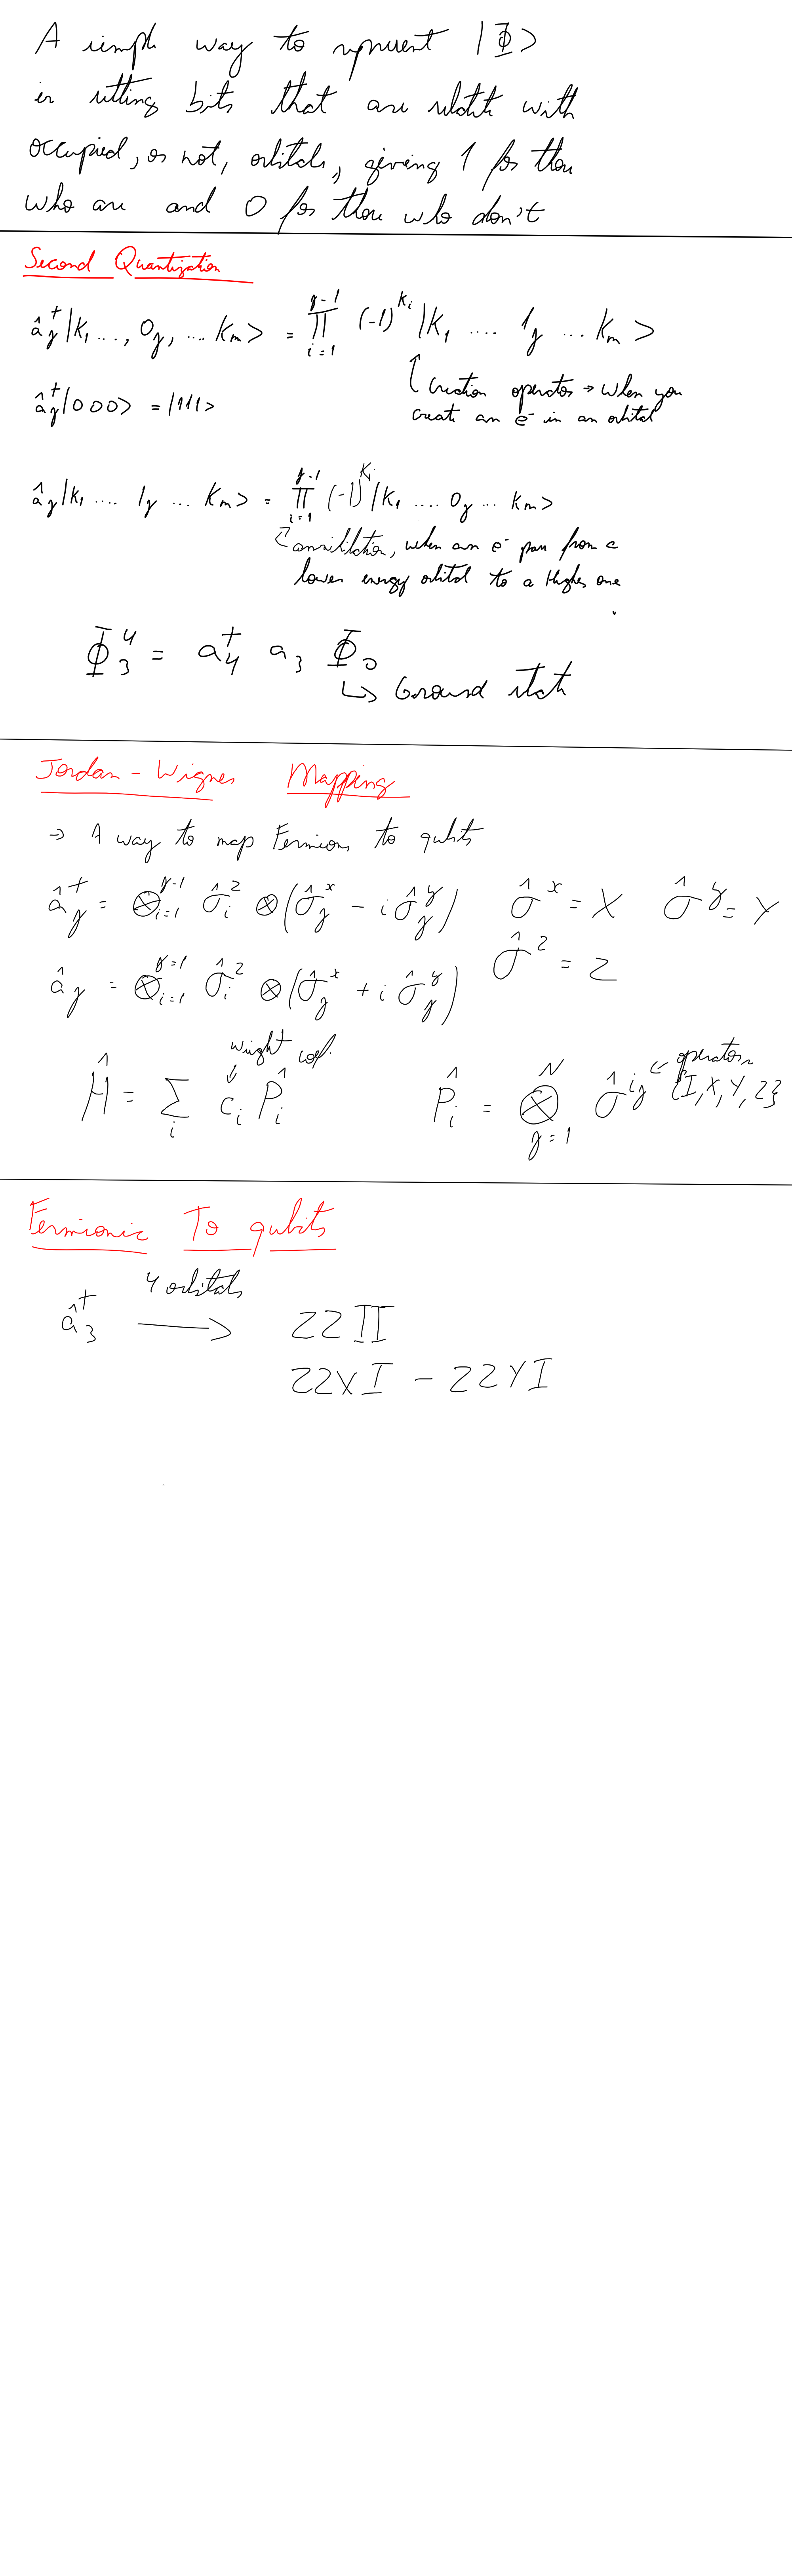 A simple way to represent |Φ>
is setting bits that are relate with
occupied, or not, orbitals, giving 1 for those
who are and 0 for those who don't
Second Quantization
â†_j |k₁ ..., 0_j, ... k_m> = ∏_{i=1}^{j-1} (-1)^{k_i} |k₁ .... 1_j ... k_m>
creation operator → when you
create an e⁻ in an orbital
â†_j |000> = |111>
â_j |k₁ .... 1_j ... k_m> = ∏_{i=1}^{j-1} (-1)^{k_i} |k₁ .... 0_j ... k_m>
annihilation, when an e⁻ pass from a
lower energy orbital to a higher one
Φ₃⁴ = a₄† a₃ Φ₀
↳ Ground state
Jordan - Wigner Mapping
→ A way to map Fermions to qubits
â†_j = ⊗_{i=1}^{j-1} σ̂_i^z ⊗ (σ̂_j^x - i σ̂_j^y) σ̂^x = X σ̂^y = Y
â_j = ⊗_{i=1}^{j=1} σ̂_i^z ⊗ (σ̂_j^x + i σ̂_j^y) σ̂^z = Z
weight coef.
Ĥ = ∑_i c_i P̂_i P̂_i = ⊗_{j=1}^{N} σ̂^{ij} ← operators {I, X, Y, Z}
Fermionic To qubits
â₃† 4 orbitals → ZZII
ZZXI - ZZYI